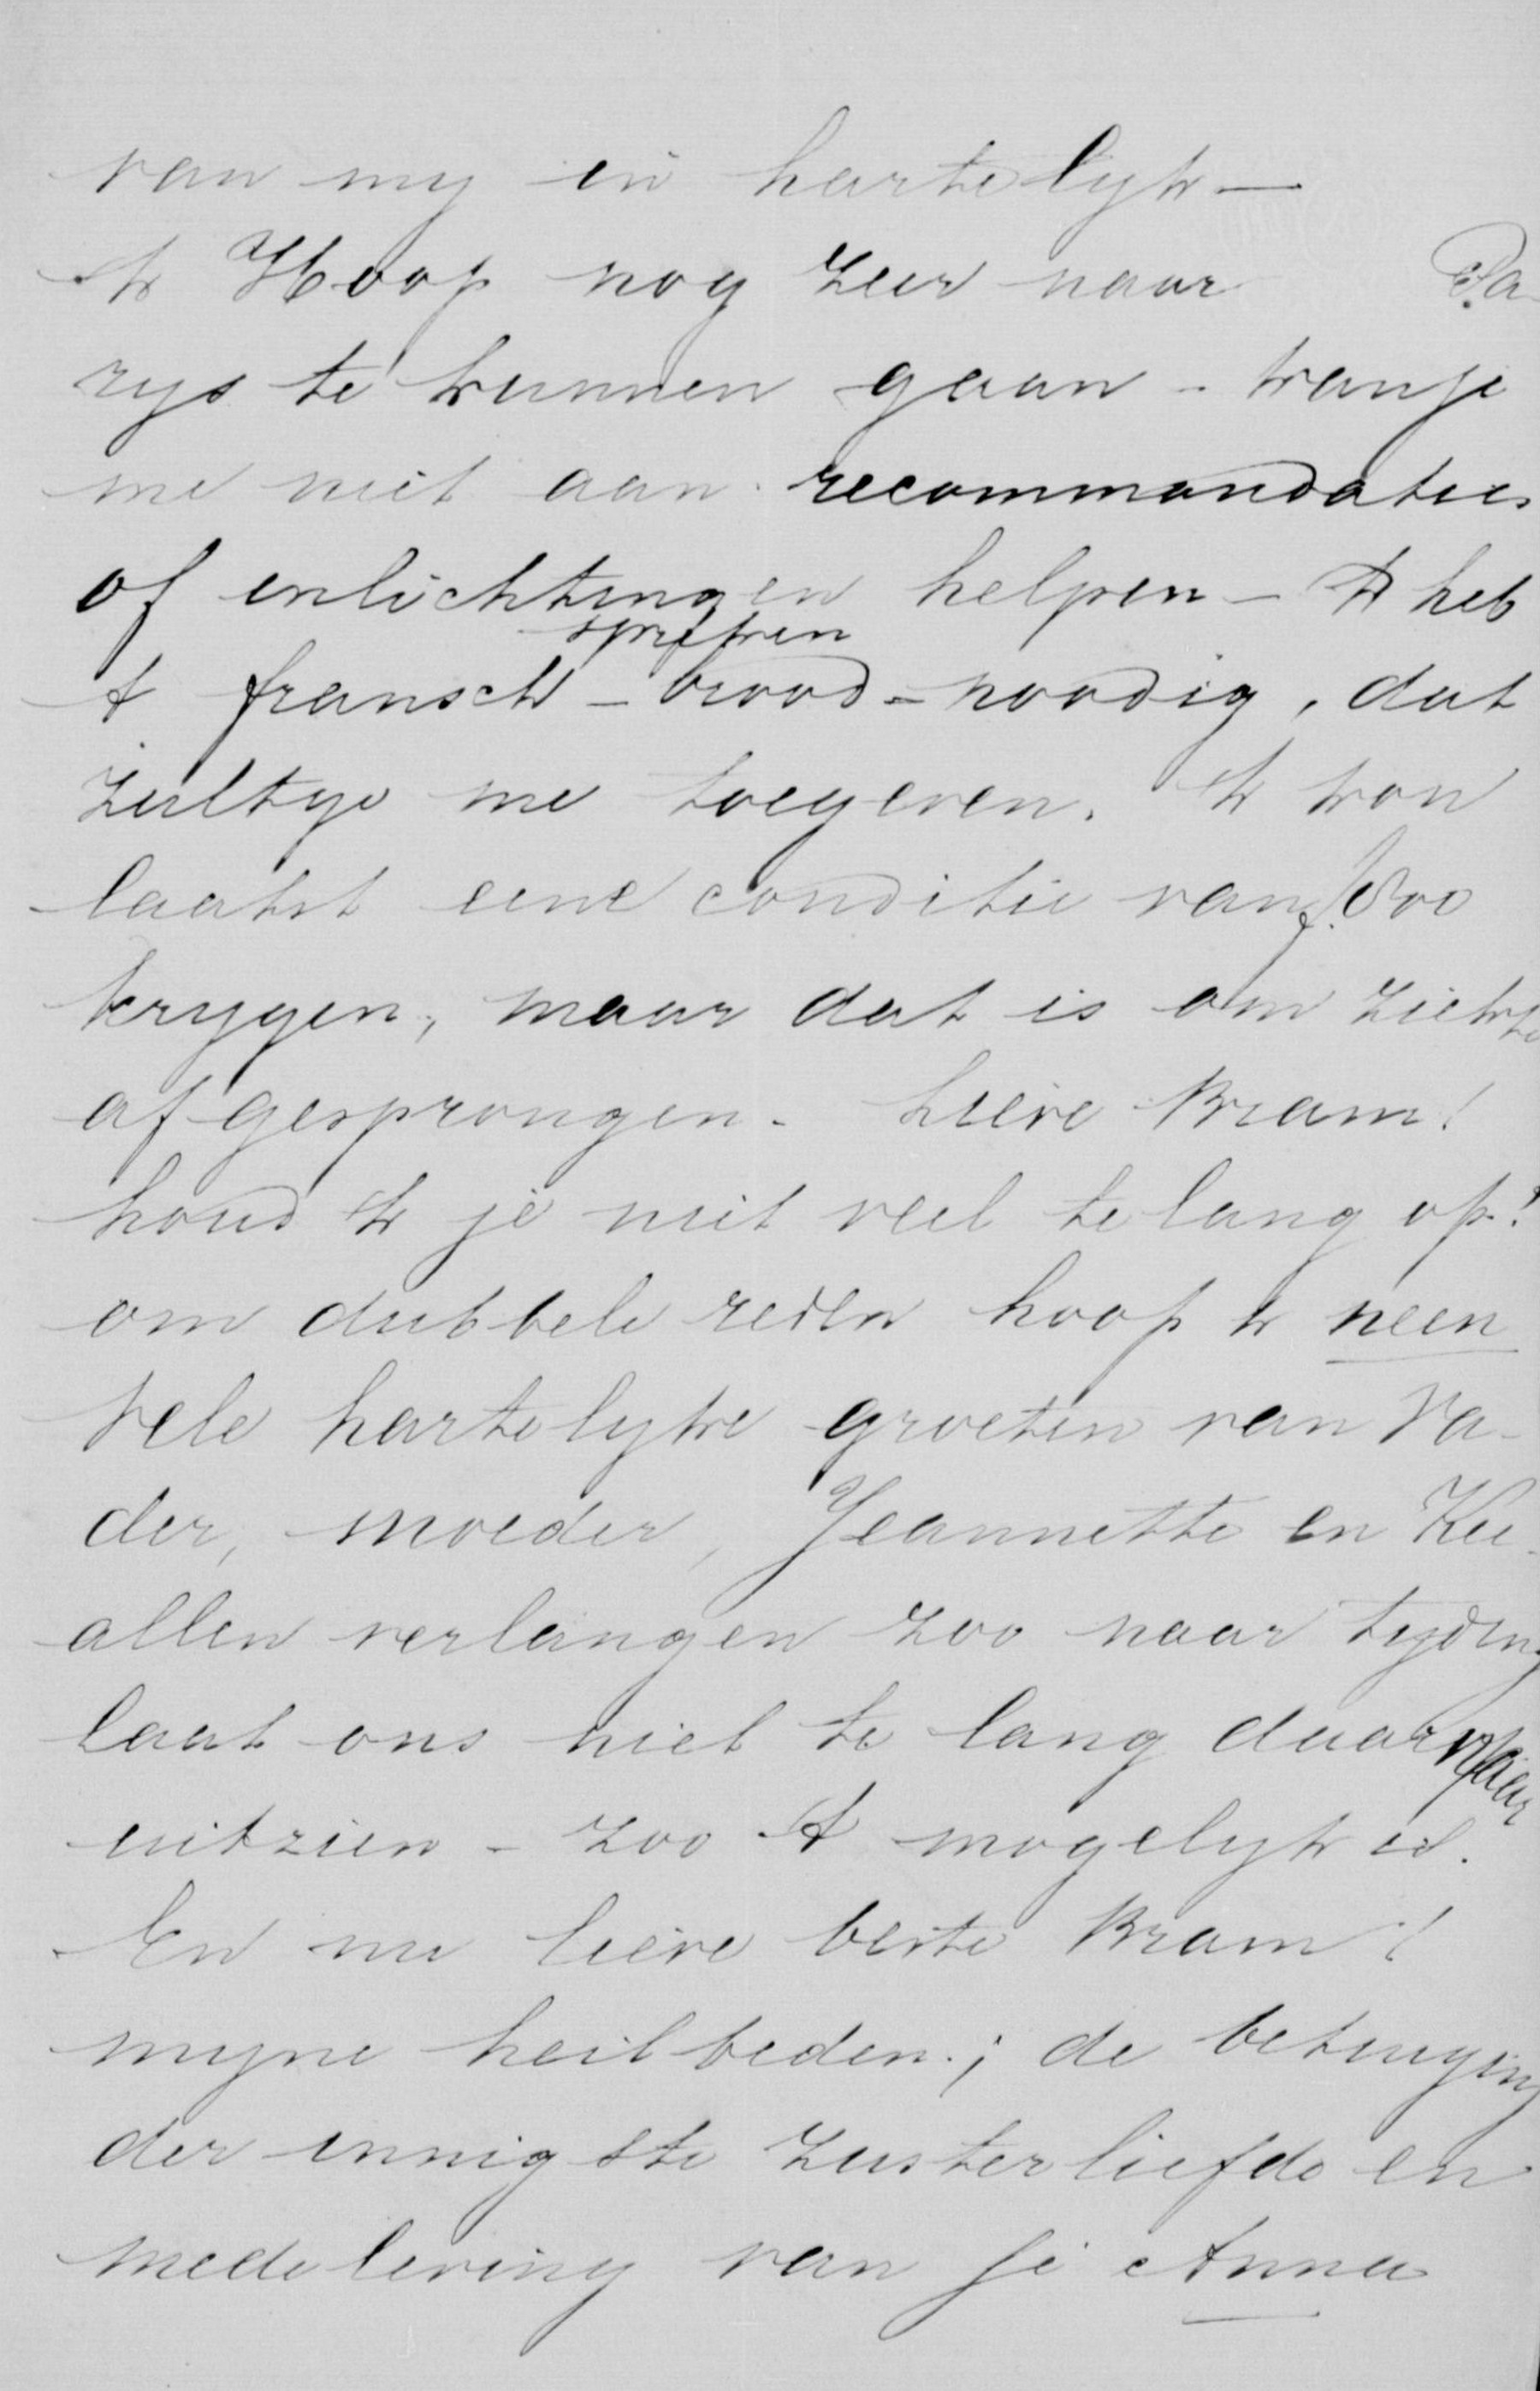 van my en hartelyk —
Ik Hoop nog zeer naar Pa
rys te kunnen gaan - kan je
me niet aan recommandaties
of inlichtingen helpen - Ik heb
spreken
't fransch - brood - noodig, dat
zultge me toegeven. Ik kon
laatst eene conditie van f. 800
krygen, maar dat is om ziekte
afgesprongen. Lieve Bram!
houd ik je niet veel te lang op?
om dubbele reden hoop ik neen
Vele hartelyke groeten van Va-
der, moeder, Jeannette en Kee.
allen verlangen zoo naar tyding
laat ons niet te lang daar naar
uitzien - zoo 't mogelyk is.
En nu lieve beste Bram!
myne heilbeden; de betuiging
der innigste zusterliefde en
medeleving van je Anna